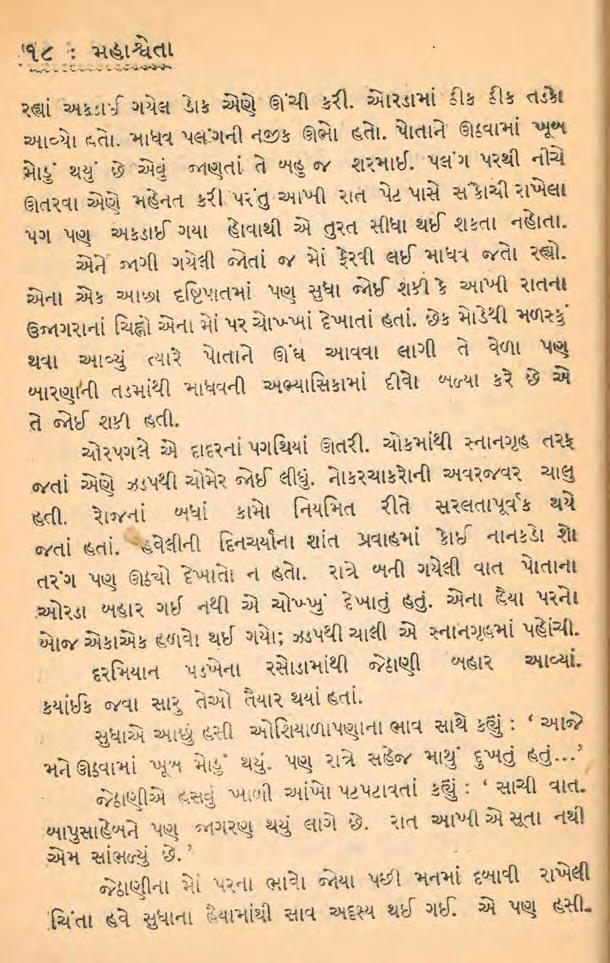 ૧૮ : મહાશ્વેતા
રહ્યાં અકડાઈ ગયેલ ડોક એણે ઊંચી કરી. ઓરડામાં ઠીક ઠીક તડકો
આવ્યો હતો. માધવ પલંગની નજીક ઊભો હતો. પોતાને ઊઠવામાં ખૂબ
મોડું થયું છે એવું જાણતાં તે બહુ જ શરમાઈ. પલંગ પરથી નીચે
ઊતરવા એણે મહેનત કરી પરંતુ આખી રાત પેટ પાસે સંકોચી રાખેલા
પગ પણ અકડાઈ ગયા હોવાથી એ તુરત સીધા થઈ શકતા નહોતા.
એને જાગી ગયેલી જોતાં જ મોં ફેરવી લઈ માધવ જતો રહ્યો.
એના એક આછા દૃષ્ટિપાતમાં પણ સુધા જોઈ શકી કે આખી રાતના
ઉજાગરાનાં ચિહ્નો એના મોં પર ચોખ્ખાં દેખાતાં હતાં. છેક મોડેથી મળસ્કું
થવા આવ્યું ત્યારે પોતાને ઊંઘ આવવા લાગી તે વેળા પણ
બારણાંની તડમાંથી માધવની અભ્યાસિકામાં દીવો બળ્યા કરે છે એ
તે જોઈ શકી હતી.
ચોરપગલે એ દાદરનાં પગથિયાં ઊતરી. ચોકમાંથી સ્નાનગૃહ તરફ
જતાં એણે ઝડપથી ચોમેર જોઈ લીધું. નોકરચાકરોની અવરજવર ચાલુ
હતી. રોજનાં બધાં કામો નિયમિત રીતે સરલતાપૂર્વક થયે
જતાં હતાં. હવેલીની દિનચર્યાના શાંત પ્રવાહમાં કોઈ નાનકડો શો
તરંગ પણ ઊઠ્યો દેખાતો ન હતો. રાત્રે બની ગયેલી વાત પોતાના
ઓરડા બહાર ગઈ નથી એ ચોખ્ખું દેખાતું હતું. એના હૈયા પરનો
બોજ એકાએક હળવો થઈ ગયો; ઝડપથી ચાલી એ સ્નાનગૃહમાં પહોંચી.
દરમિયાન પડખેના રસોડામાંથી જેઠાણી બહાર આવ્યાં.
કયાંઈક જવા સારુ તેઓ તૈયાર થયાં હતાં.
સુધાએ આછું હસી ઓશિયાળાપણાના ભાવ સાથે કહ્યું : ‘ આજે
મને ઊઠવામાં ખૂબ મોડું થયું. પણ રાત્રે સહેજ માથું દુખતું હતું...’
જેઠાણીએ હસવું ખાળી આંખો પટપટાવતાં કહ્યું : ‘ સાચી વાત.
બાપુસાહેબને પણ જાગરણ થયું લાગે છે. રાત આખી એ સૂતા નથી
એમ સાંભળ્યું છે.’
જેઠાણીના મોં પરના ભાવો જોયા પછી મનમાં દબાવી રાખેલી
ચિંતા હવે સુધાના હૈયામાંથી સાવ અદૃસ્ય થઈ ગઈ. એ પણ હસી.